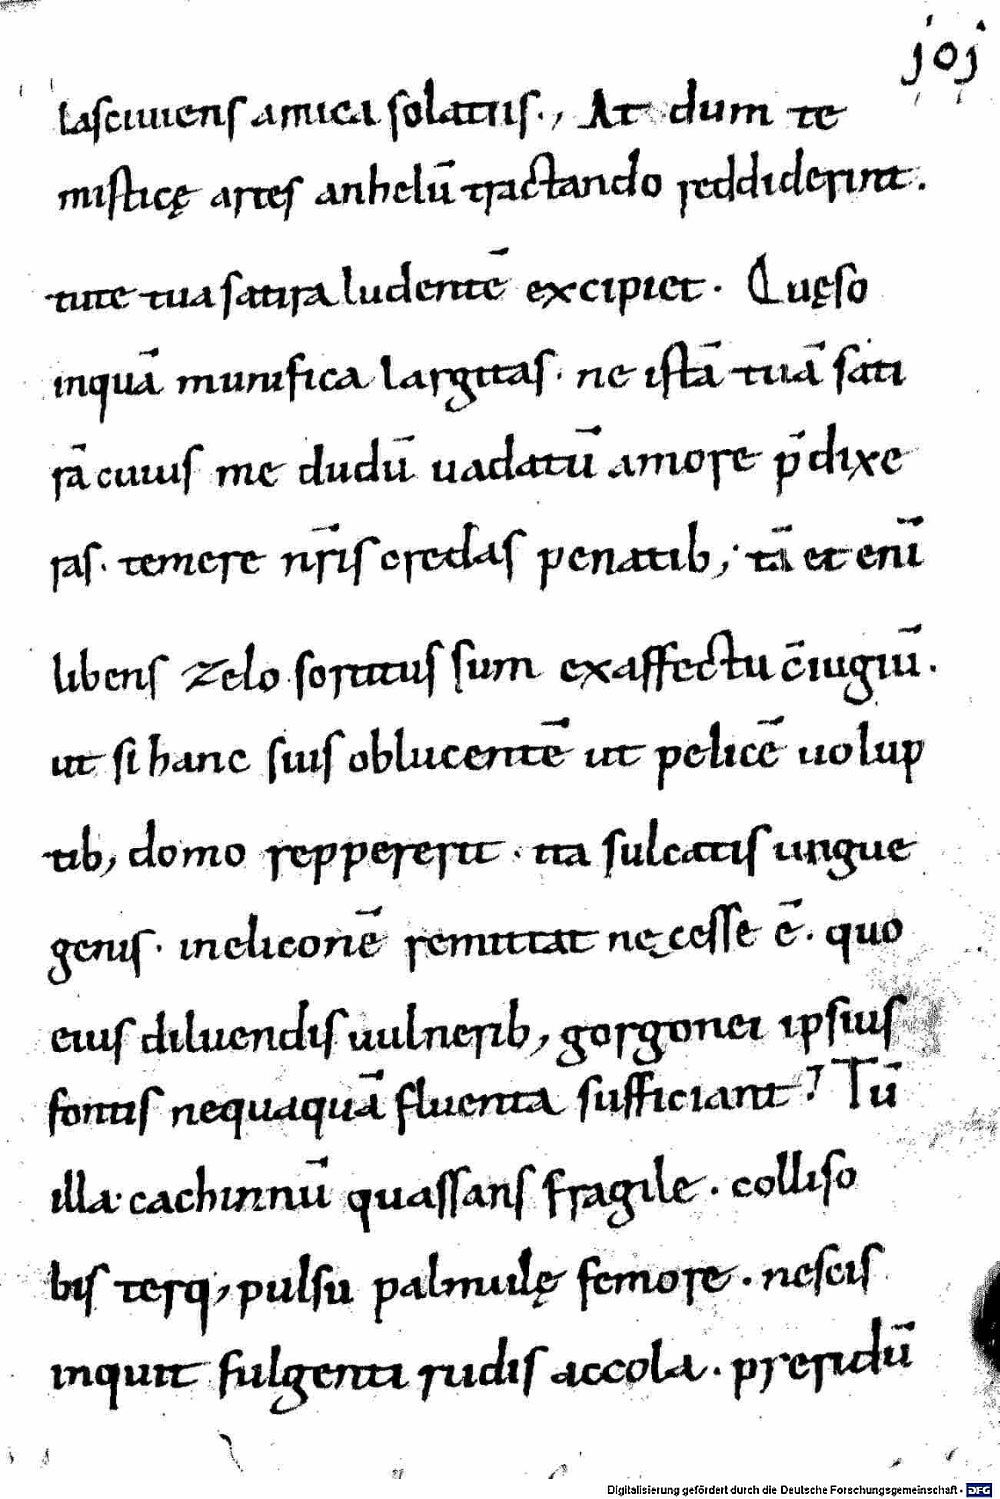 joj
laſciuienſ amica ſolatiiſ., At dum te
miſticę arteſ anhelū tractando reddiderint.
tute tua ſatira ludentē excipiet. Quęſo
inquā munifica largitaſ. ne iſtā tuā ſati
rā cuiuſ me dudū uadatū amore p̄dixe
raſ. temere nr̄iſ credaſ penatib; tā et eni
libenſ zelo ſortituſ ſum ex affectu c̄iugiū.
ut ſi hanc ſuiſ oblucentē ut pelicē uolup
tib; domo reppererit. ita ſulcatiſ ungue
geniſ. in eliconē remittat nęceſſe ē. quo
eiuſ diluendiſ uulnerib; gorgonei ipſiuſ
fontiſ nequaquā fluenta ſufficiant? Tū
illa. cachinnū quaſſanſ fragile. colliſo
biſ terq; pulſu palmulę femore. neſciſ
inquit fulgenti rudiſ accola. preſidū
Digitalisierung gefördert durch die Deutsche Forschungsgemeinschaft - DFG